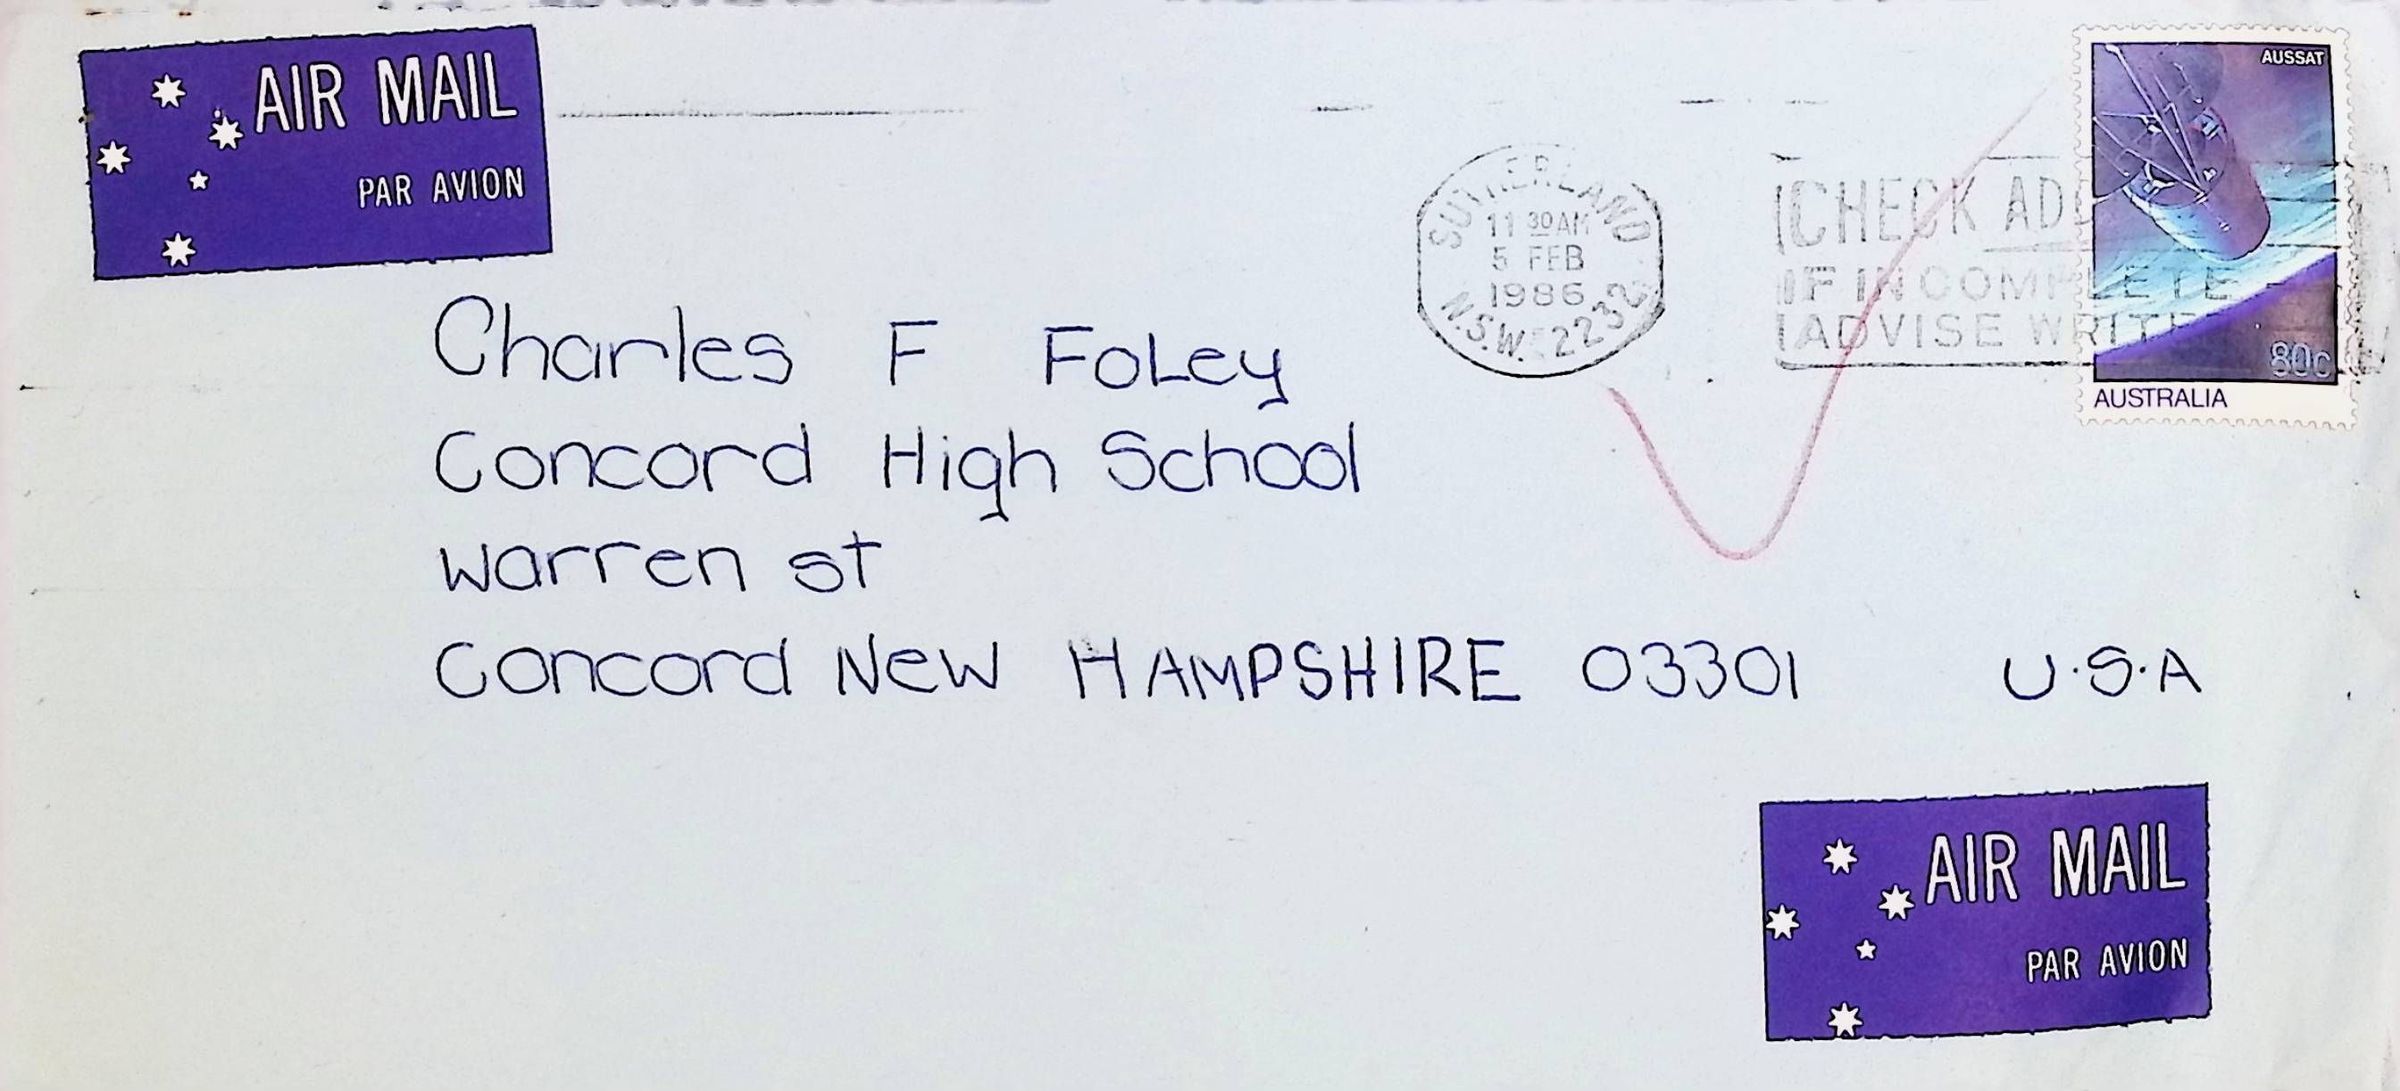 AIR MAIL
PAR AVION
AUSSAT
80c
AUSTRALIA
SUTHERLAND
11 30AM
5 FEB
1986
N.S.W. 2232
CHECK AD
IF INCOMPLETE
ADVISE WRITE
Charles F FoLey
Concord High School
Warren st
Concord New HAMPSHIRE 03301 U.S.A
AIR MAIL
PAR AVION